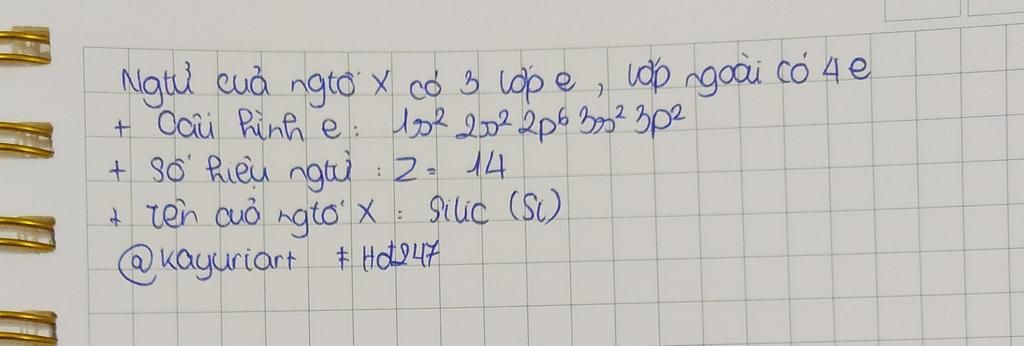 Ngtử cuả ngtố X có 3 lớp e, lớp ngoài có 4e
+ Cấu hình e: 1s² 2s² 2p⁶ 3s² 3p²
+ Số hiệu ngtử: Z = 14
+ Tên cuả ngtố X: Silic (Si)
@kayuriart # Hd247